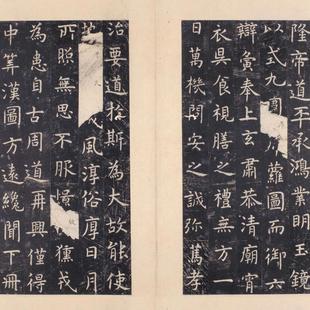 隆帝道丕承鴻業明玉鏡
以式九蘿圖而御六
辯寅奉上玄肅恭清廟宵
衣昃食視膳之禮無方一
日萬機問安之誠弥篤孝
治要道於斯為大故能使
風淳俗厚日月
所照無思不服憬獯戎
為患自古周道再興僅得
中筭漢圖方遠纔聞下冊